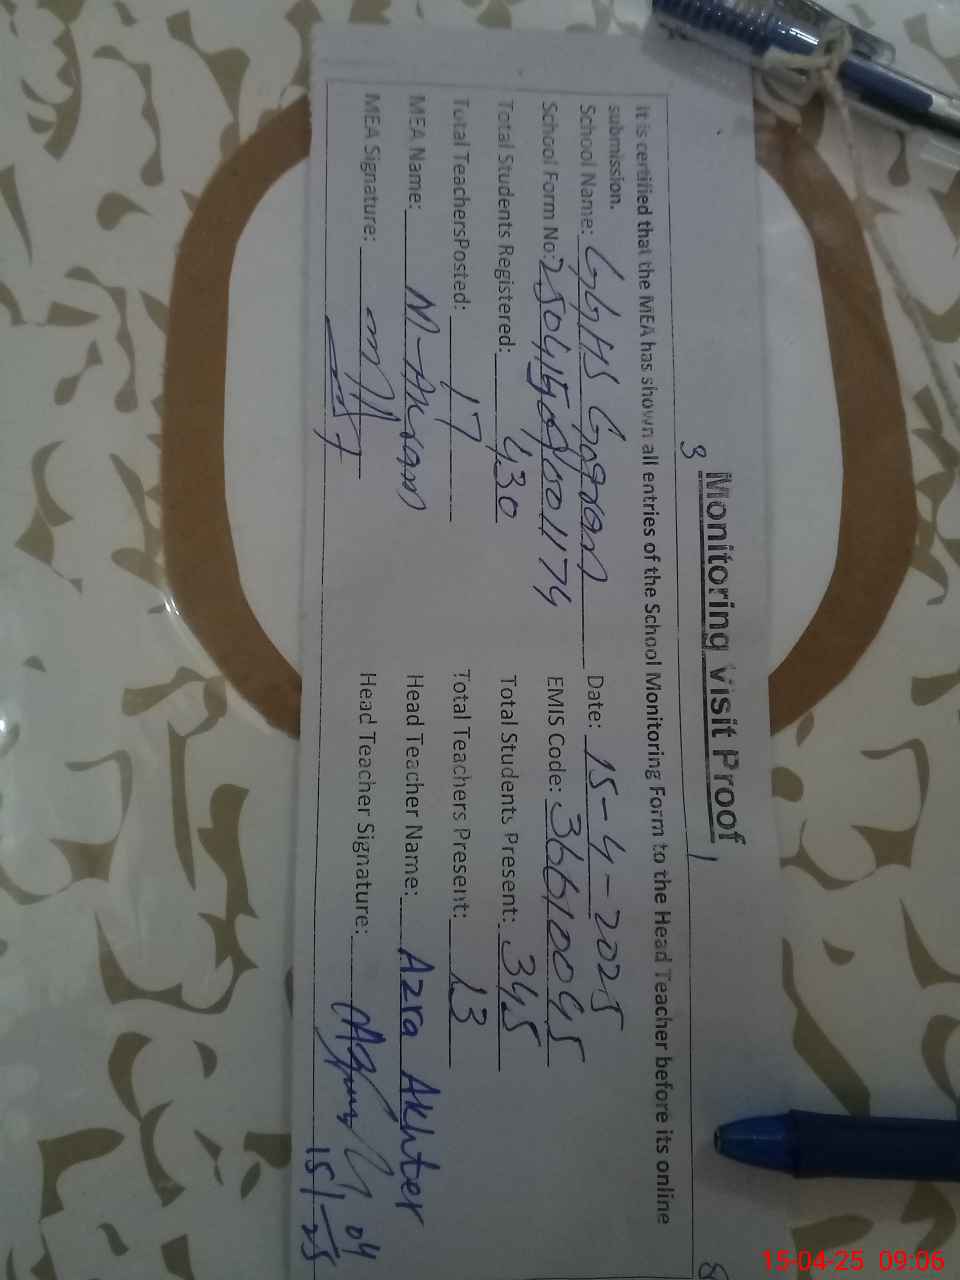 Monitoring Visit Proof
3
1
8
It is certified that the MEA has shown all entries of the School Monitoring Form to the Head Teacher before its online
submission.
School Name: GGHS Date: 15-4-2025
School Form No: EMIS Code: 36610045
Total Students Registered: 430 Total Students Present: 345
Total TeachersPosted: 17 Total Teachers Present: 13
MEA Name: M-Akram Head Teacher Name: Azra Akhter
MEA Signature: Head Teacher Signature:
15/04/25
15-04-25 09:06